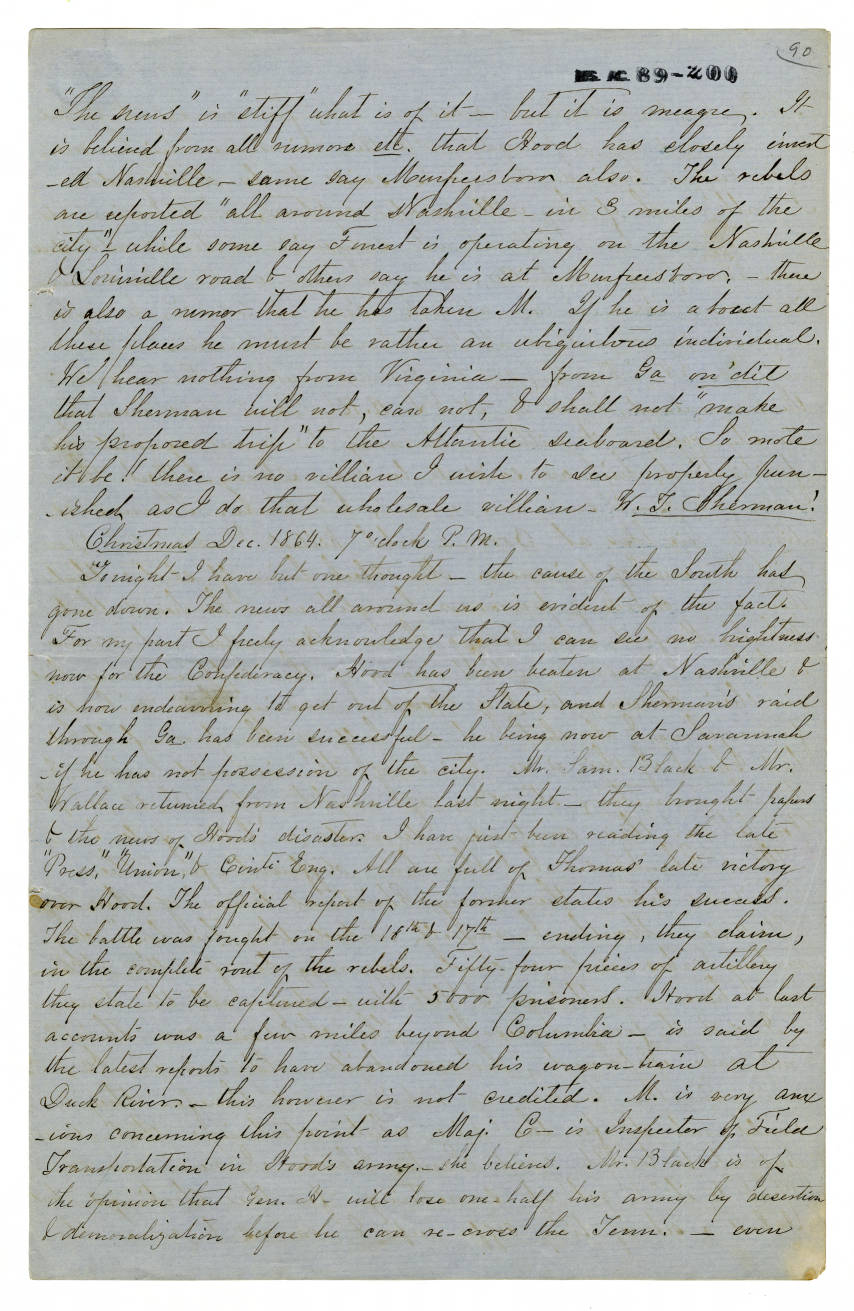 90
MS. AC. 89-200
"The news" is "stiff" what is of it - but it is meagre. It
is believed from all rumors etc. that Hood has closely invest
-ed Nashville - some say Murfreesboro also. The rebels
are reported "all around Nashville - in 3 miles of the
city" - while some say Forrest is operating on the Nashville
& Louisville road & others say he is at Murfreesboro, - there
is also a rumor that he has taken M. If he is about all
these places he must be rather an ubiquitous individual.
We hear nothing from Virginia - from Ga on'dit
that Sherman will not, can not, & shall not "make
his proposed trip" to the Atlantic seaboard. So mote
it be! there is no villian I wish to see properly pun-
-ished as I do that wholesale villian - W. T. Sherman!
Christmas Dec. 1864. 7 o'clock P.M.
Tonight I have but one thought - the cause of the South has
gone down. The news all around us is evident of the fact.
For my part I freely acknowledge that I can see no brightness
now for the Confederacy. Hood has been beaten at Nashville &
is now endeavoring to get out of the State, and Sherman's raid
through Ga has been successful - he being now at Savannah
- if he has not possession of the city. Mr. Sam. Black & Mr.
Wallace returned from Nashville last night - they brought papers
& the news of Hood's disaster. I have just been reading the late
"Press," "Union," & Cinti Enq. All are full of Thomas' late victory
over Hood. The official report of the former states his success.
The battle was fought on the 16th & 17th - ending, they claim,
in the complete rout of the rebels. Fifty-four pieces of artillery
they state to be captured - with 5000 prisoners. Hood at last
accounts was a few miles beyond Columbia - is said by
the latest reports to have abandoned his wagon-train at
Duck River. - this however is not credited. M. is very anx
-ious concerning this point as Maj. C- is Inspecter of Field
Transportation in Hood's army. - she believes. Mr. Black is of
the opinion that Gen. H- will lose one-half his army by desertion
& demoralization before he can re-cross the Tenn. - even